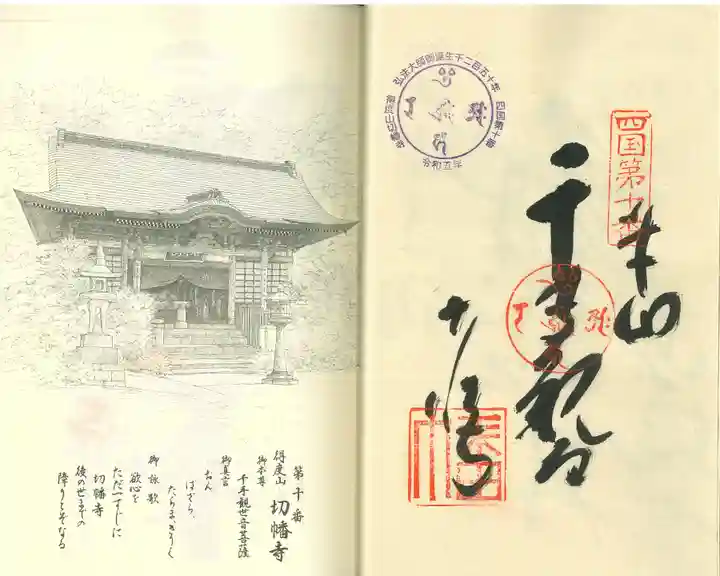 四国第十番
奉山
千手観音
十切幡寺
弘法大師御誕生千二百五十年
四国第十番
令和五年
第十番
得度山 切幡寺
御本尊
千手観世音菩薩
御真言
おん
ばざら、
たらま、きりく
御詠歌
欲心を
ただ一すじに
切幡寺
後の世までの
障りとぞなる